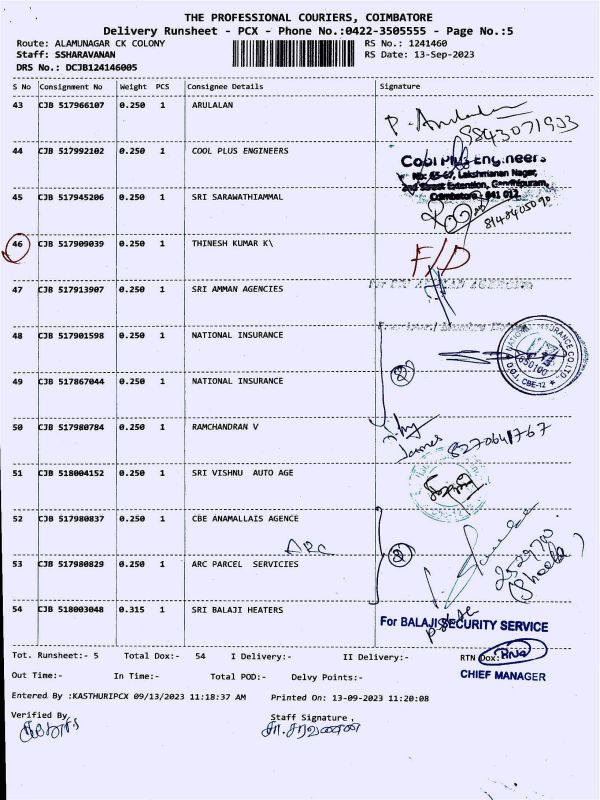 THE PROFESSIONAL COURIERS, COIMBATORE
Delivery Runsheet - PCX - Phone No.:0422-3505555 - Page No.:5
Route: ALAMUNAGAR CK COLONY RS No.: 1241460
Staff: SSHARAVANAN RS Date: 13-Sep-2023
DRS No.: DCJB124146005
S No Consignment No Weight PCS Consignee Details Signature
43 CJB 517966107 0.250 1 ARULALAN
P. Arulalan
9843071903
44 CJB 517992102 0.250 1 COOL PLUS ENGINEERS
Cool Plus Engineers
No: 65-67, Lakshmanan Nagar,
2nd Street Extension, Gandhipuram,
Coimbatore - 641 012.
45 CJB 517945206 0.250 1 SRI SARAWATHIAMMAL
8148405090
46 CJB 517909039 0.250 1 THINESH KUMAR K\
F/D
47 CJB 517913907 0.250 1 SRI AMMAN AGENCIES
48 CJB 517901598 0.250 1 NATIONAL INSURANCE
INSURANCE CO LTD
650100
D.O.I. CBE-12
2
49 CJB 517867044 0.250 1 NATIONAL INSURANCE
50 CJB 517980784 0.250 1 RAMCHANDRAN V
James 8270641767
51 CJB 518004152 0.250 1 SRI VISHNU AUTO AGE
52 CJB 517980837 0.250 1 CBE ANAMALLAIS AGENCE
ARC
2
53 CJB 517980829 0.250 1 ARC PARCEL SERVICIES
54 CJB 518003048 0.315 1 SRI BALAJI HEATERS
For BALAJI SECURITY SERVICE
Tot. Runsheet:- 5 Total Dox:- 54 I Delivery:- II Delivery:- RTN Dox:
CHIEF MANAGER
Out Time:- In Time:- Total POD:- Delvy Points:-
Entered By :KASTHURIPCX 09/13/2023 11:18:37 AM Printed On: 13-09-2023 11:20:08
Verified By Staff Signature
சா.சரவணன்